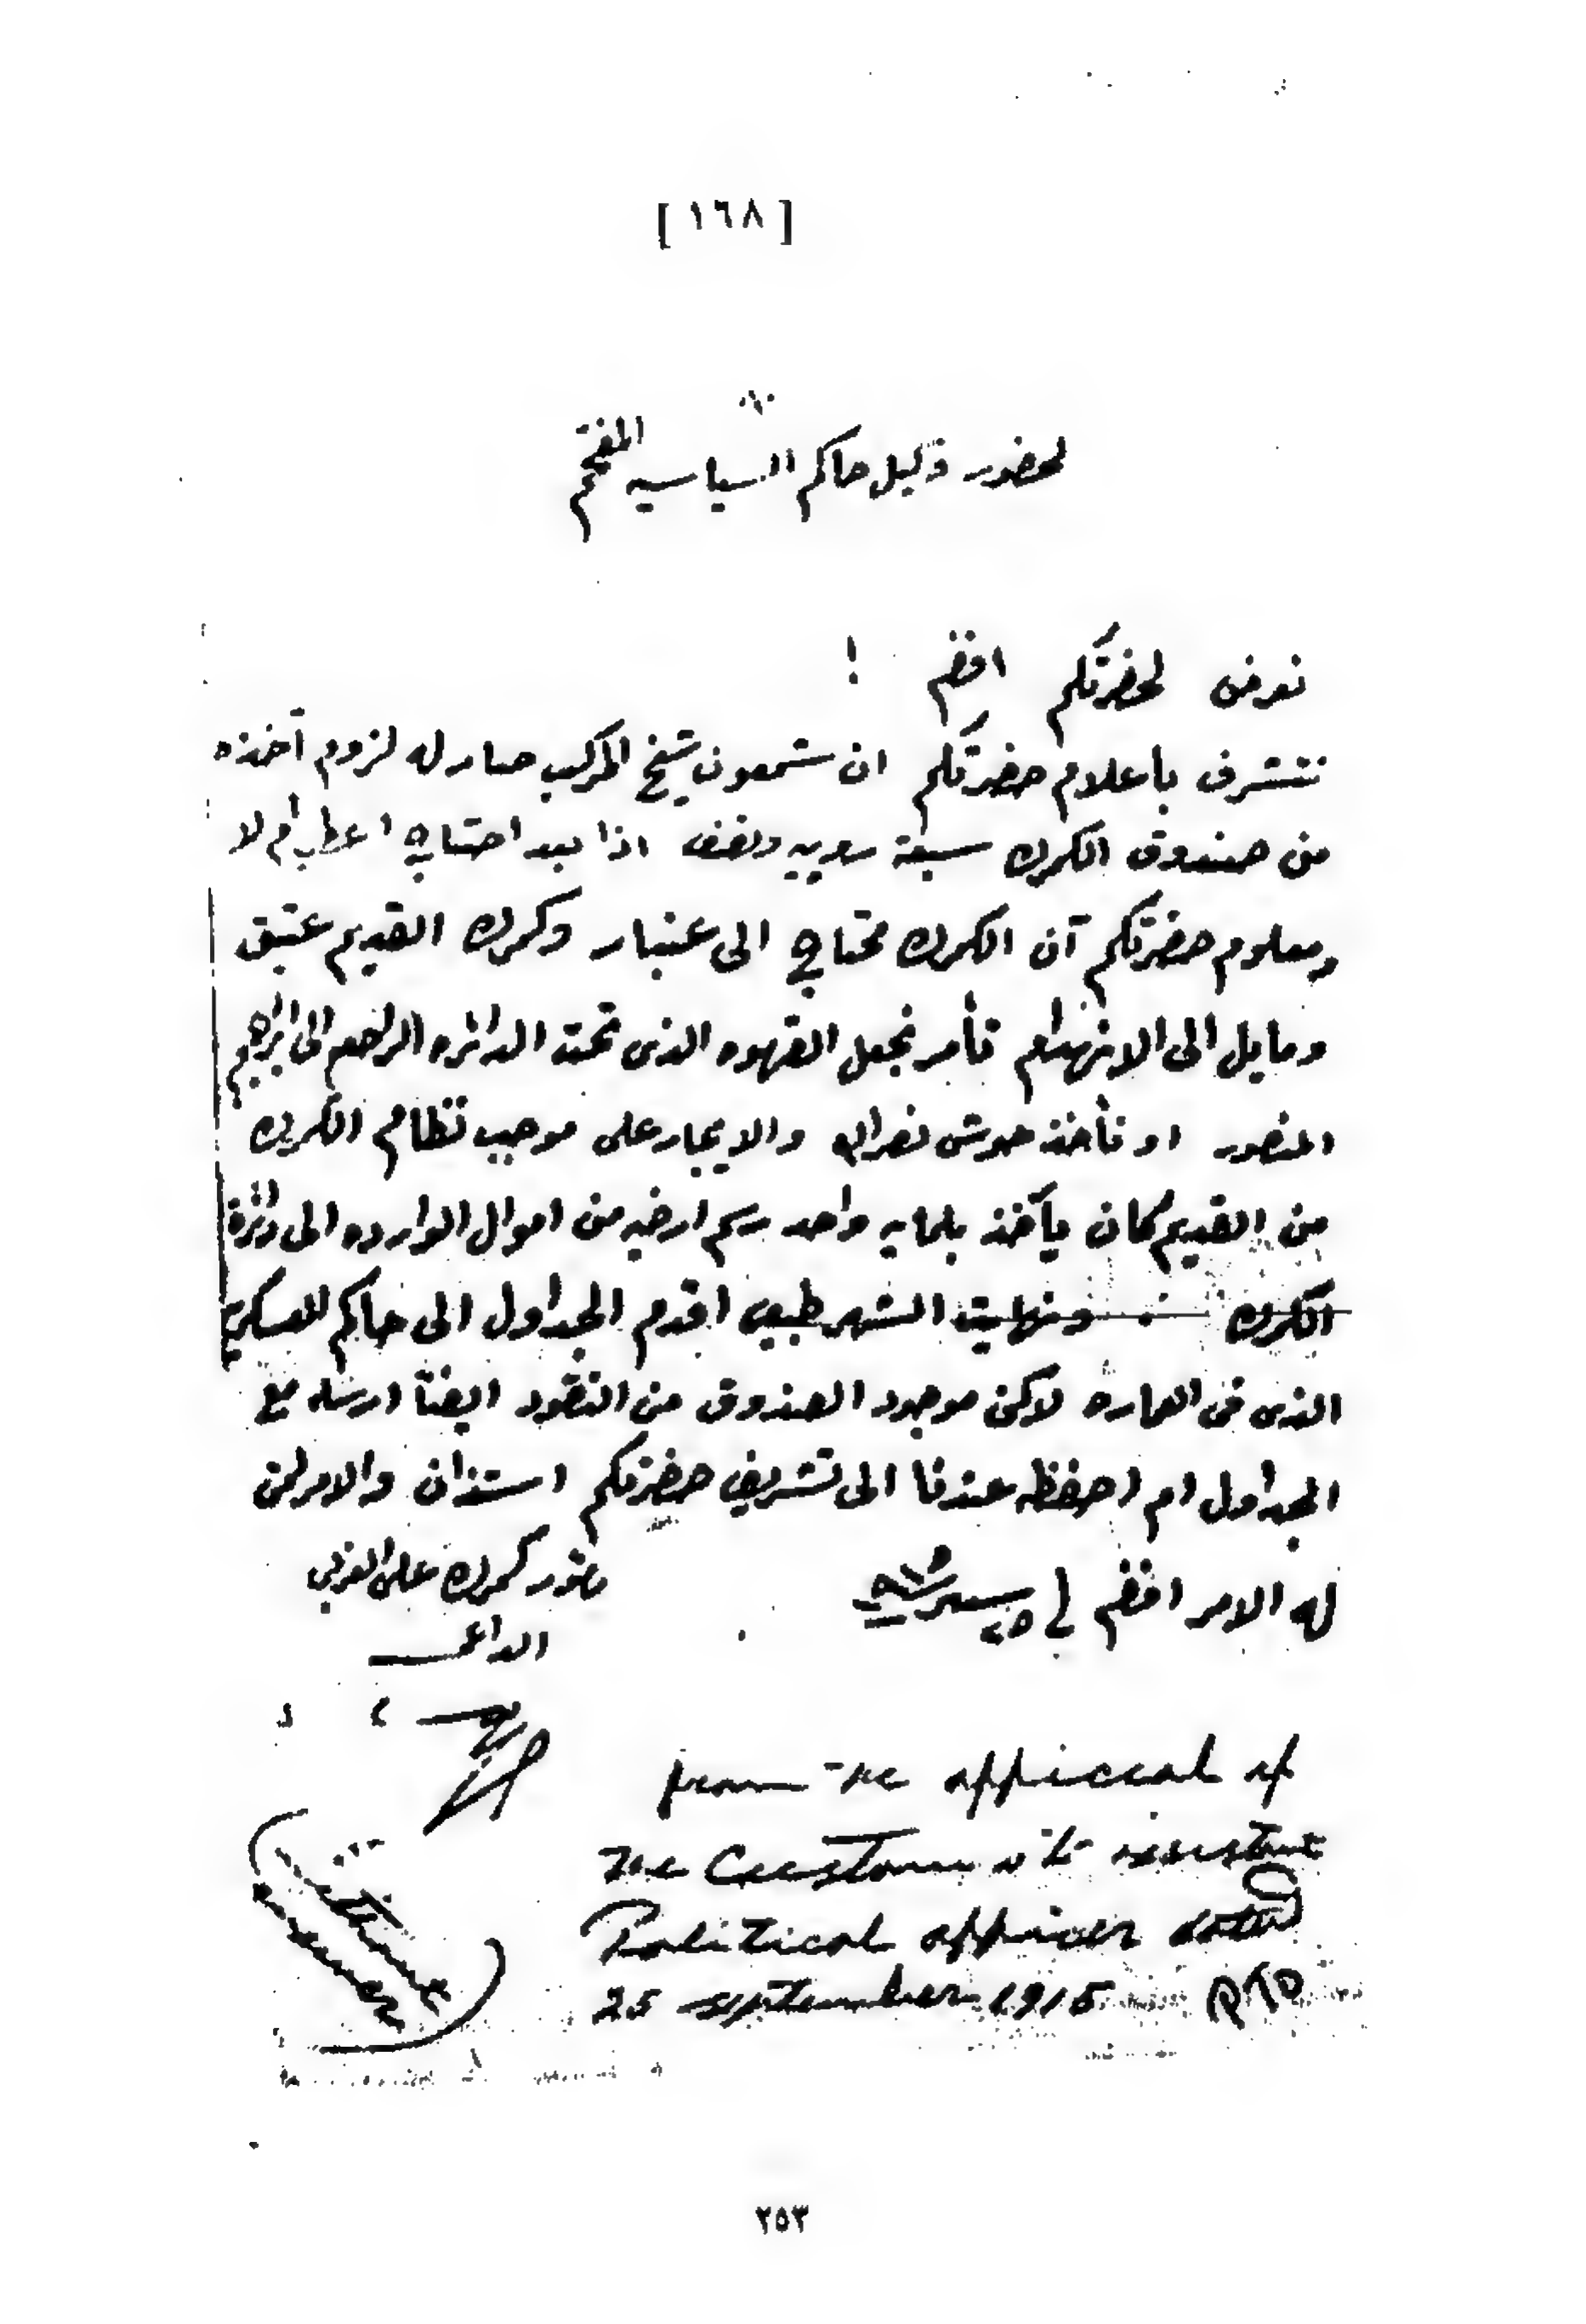 [ ١٦٨ ]
لحضور وكيل حاكم السياسيه المفخم
نعرض لحضرتكم افندم !
نتشرف بأعلام حضرتكم ان شمعون شيخ المركب صار له لزوم آخذه
من صندوق الكمرك سبعة روبيه ونصف اذا بعد احتاج اعطيه ام لا
ومعلوم حضرتكم آن الكمرك محتاج الى عنبار وكمرك القديم عتيق
ومايل الى الانهدام تأمر نجعل القهوه الذى تحت الدائره الراجع الى ابراهيم
المنصور او نأخذ حوش نصرالله والايجار على موجب نظام الكمرك
من القديم كان يآخذ بلمايه واحد رسم ارضيه من اموال الوارده الى دائرة
الكمرك ونهايت الشهر طبيعى اقدم الجداول الى حاكم للعسكريه
الذى فى العماره لاكن موجود الصندوق من النقود ايضاً ارسله مع
الجداول ام احفظه عندنا الى تشريف حضرتكم استذان والامر لمن
له الامر افندم فى ٢٥ سبتمبر ٩١٥
مأمور كمرك على الغربى
الداعى
from the official of
the Customs to assistant
Political officer dated
25 september 1915 PTO
٢٥٣